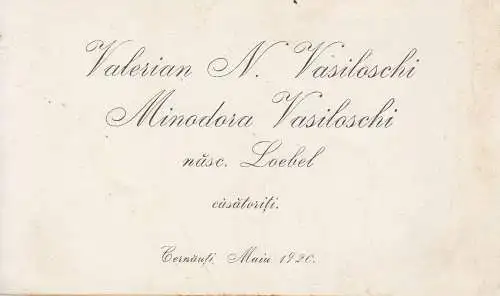 Valerian N. Vasiloschi
Minodora Vasiloschi
născ. Loebel
căsătoriți.
Cernăuți, Maiu 1920.